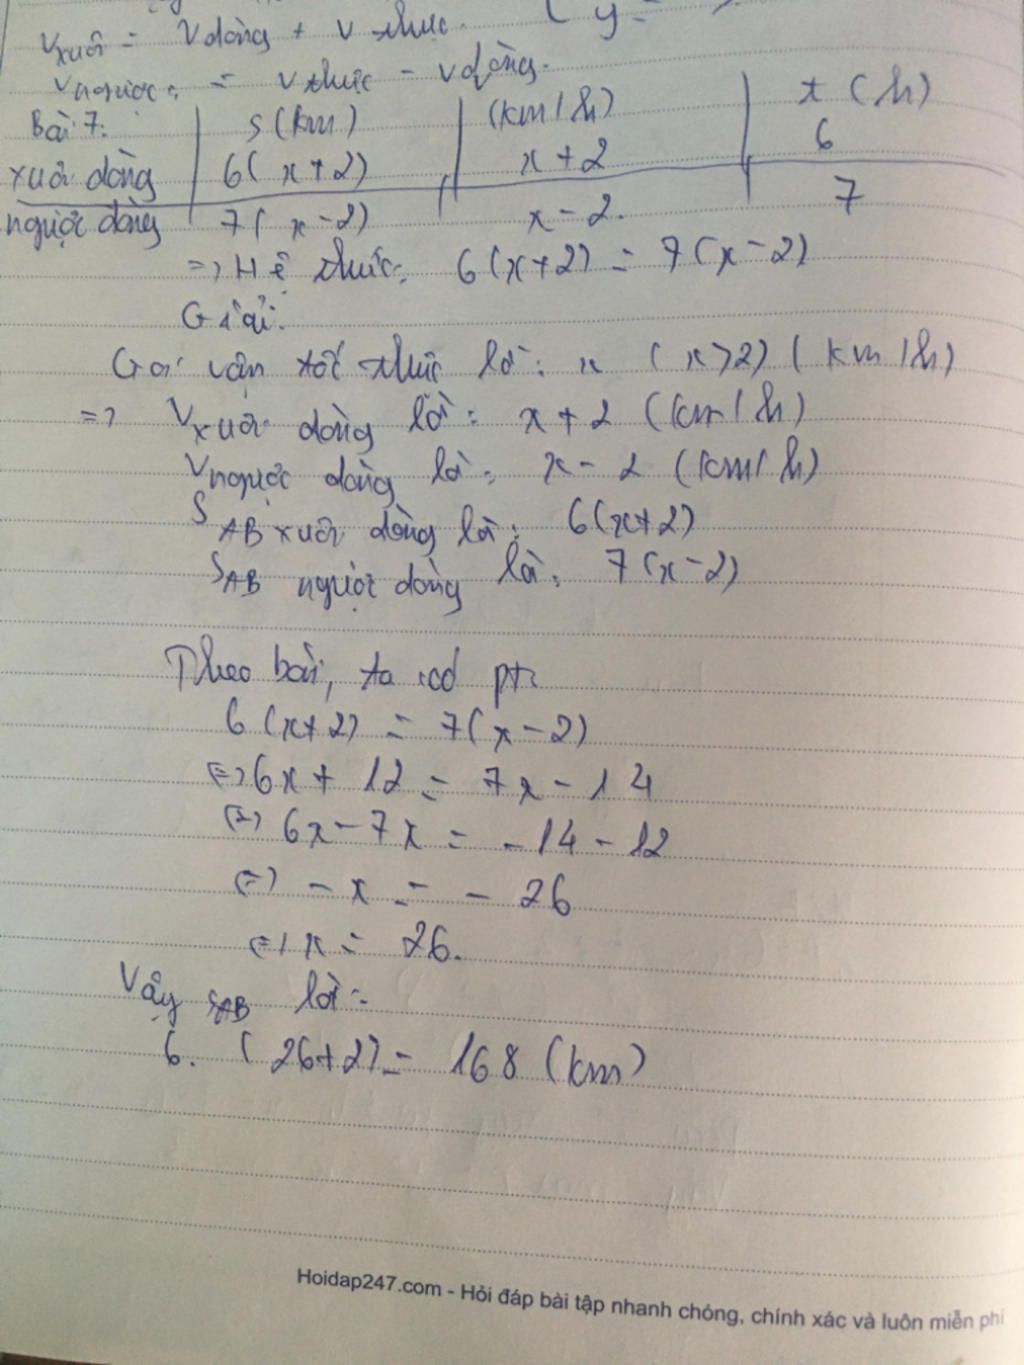 Vxuôi = Vdòng + V thực.
Vngược = V thực - V dòng.
Bài 7: S (km) (km/h) t (h)
xuôi dòng 6(x+2) x+2 6
ngược dòng 7(x-2) x-2. 7
=> Hệ thức: 6(x+2) = 7(x-2)
Giải:
Gọi vận tốc thực là: x (x>2) (km/h)
=> Vxuôi dòng là: x+2 (km/h)
Vngược dòng là: x-2 (km/h)
SAB xuôi dòng là: 6(x+2)
SAB ngược dòng là: 7(x-2)
Theo bài, ta có pt:
6(x+2) = 7(x-2)
(=) 6x + 12 = 7x - 14
(=) 6x - 7x = -14 - 12
(=) -x = -26
(=) x = 26.
Vậy SAB là:
6. (26+2) = 168 (km)
Hoidap247.com - Hỏi đáp bài tập nhanh chóng, chính xác và luôn miễn phí